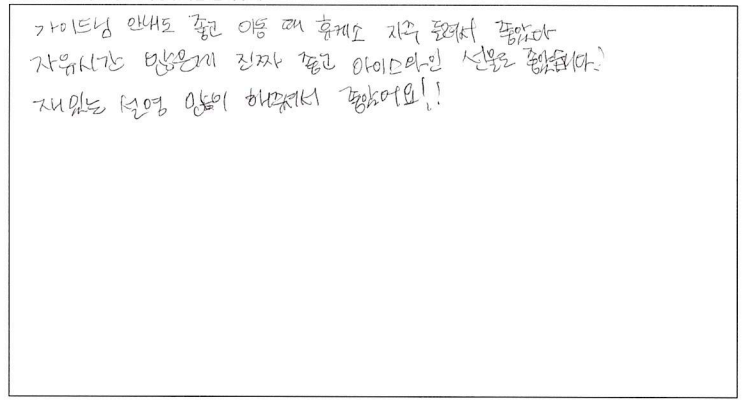 가이드님 안내도 좋고 이동 때 휴게소 자주 들려서 좋았다
자유시간 많은게 진짜 좋고 아이스와인 선물도 좋았습니다.
재밌는 설명 많이 해주셔서 좋았어요!!